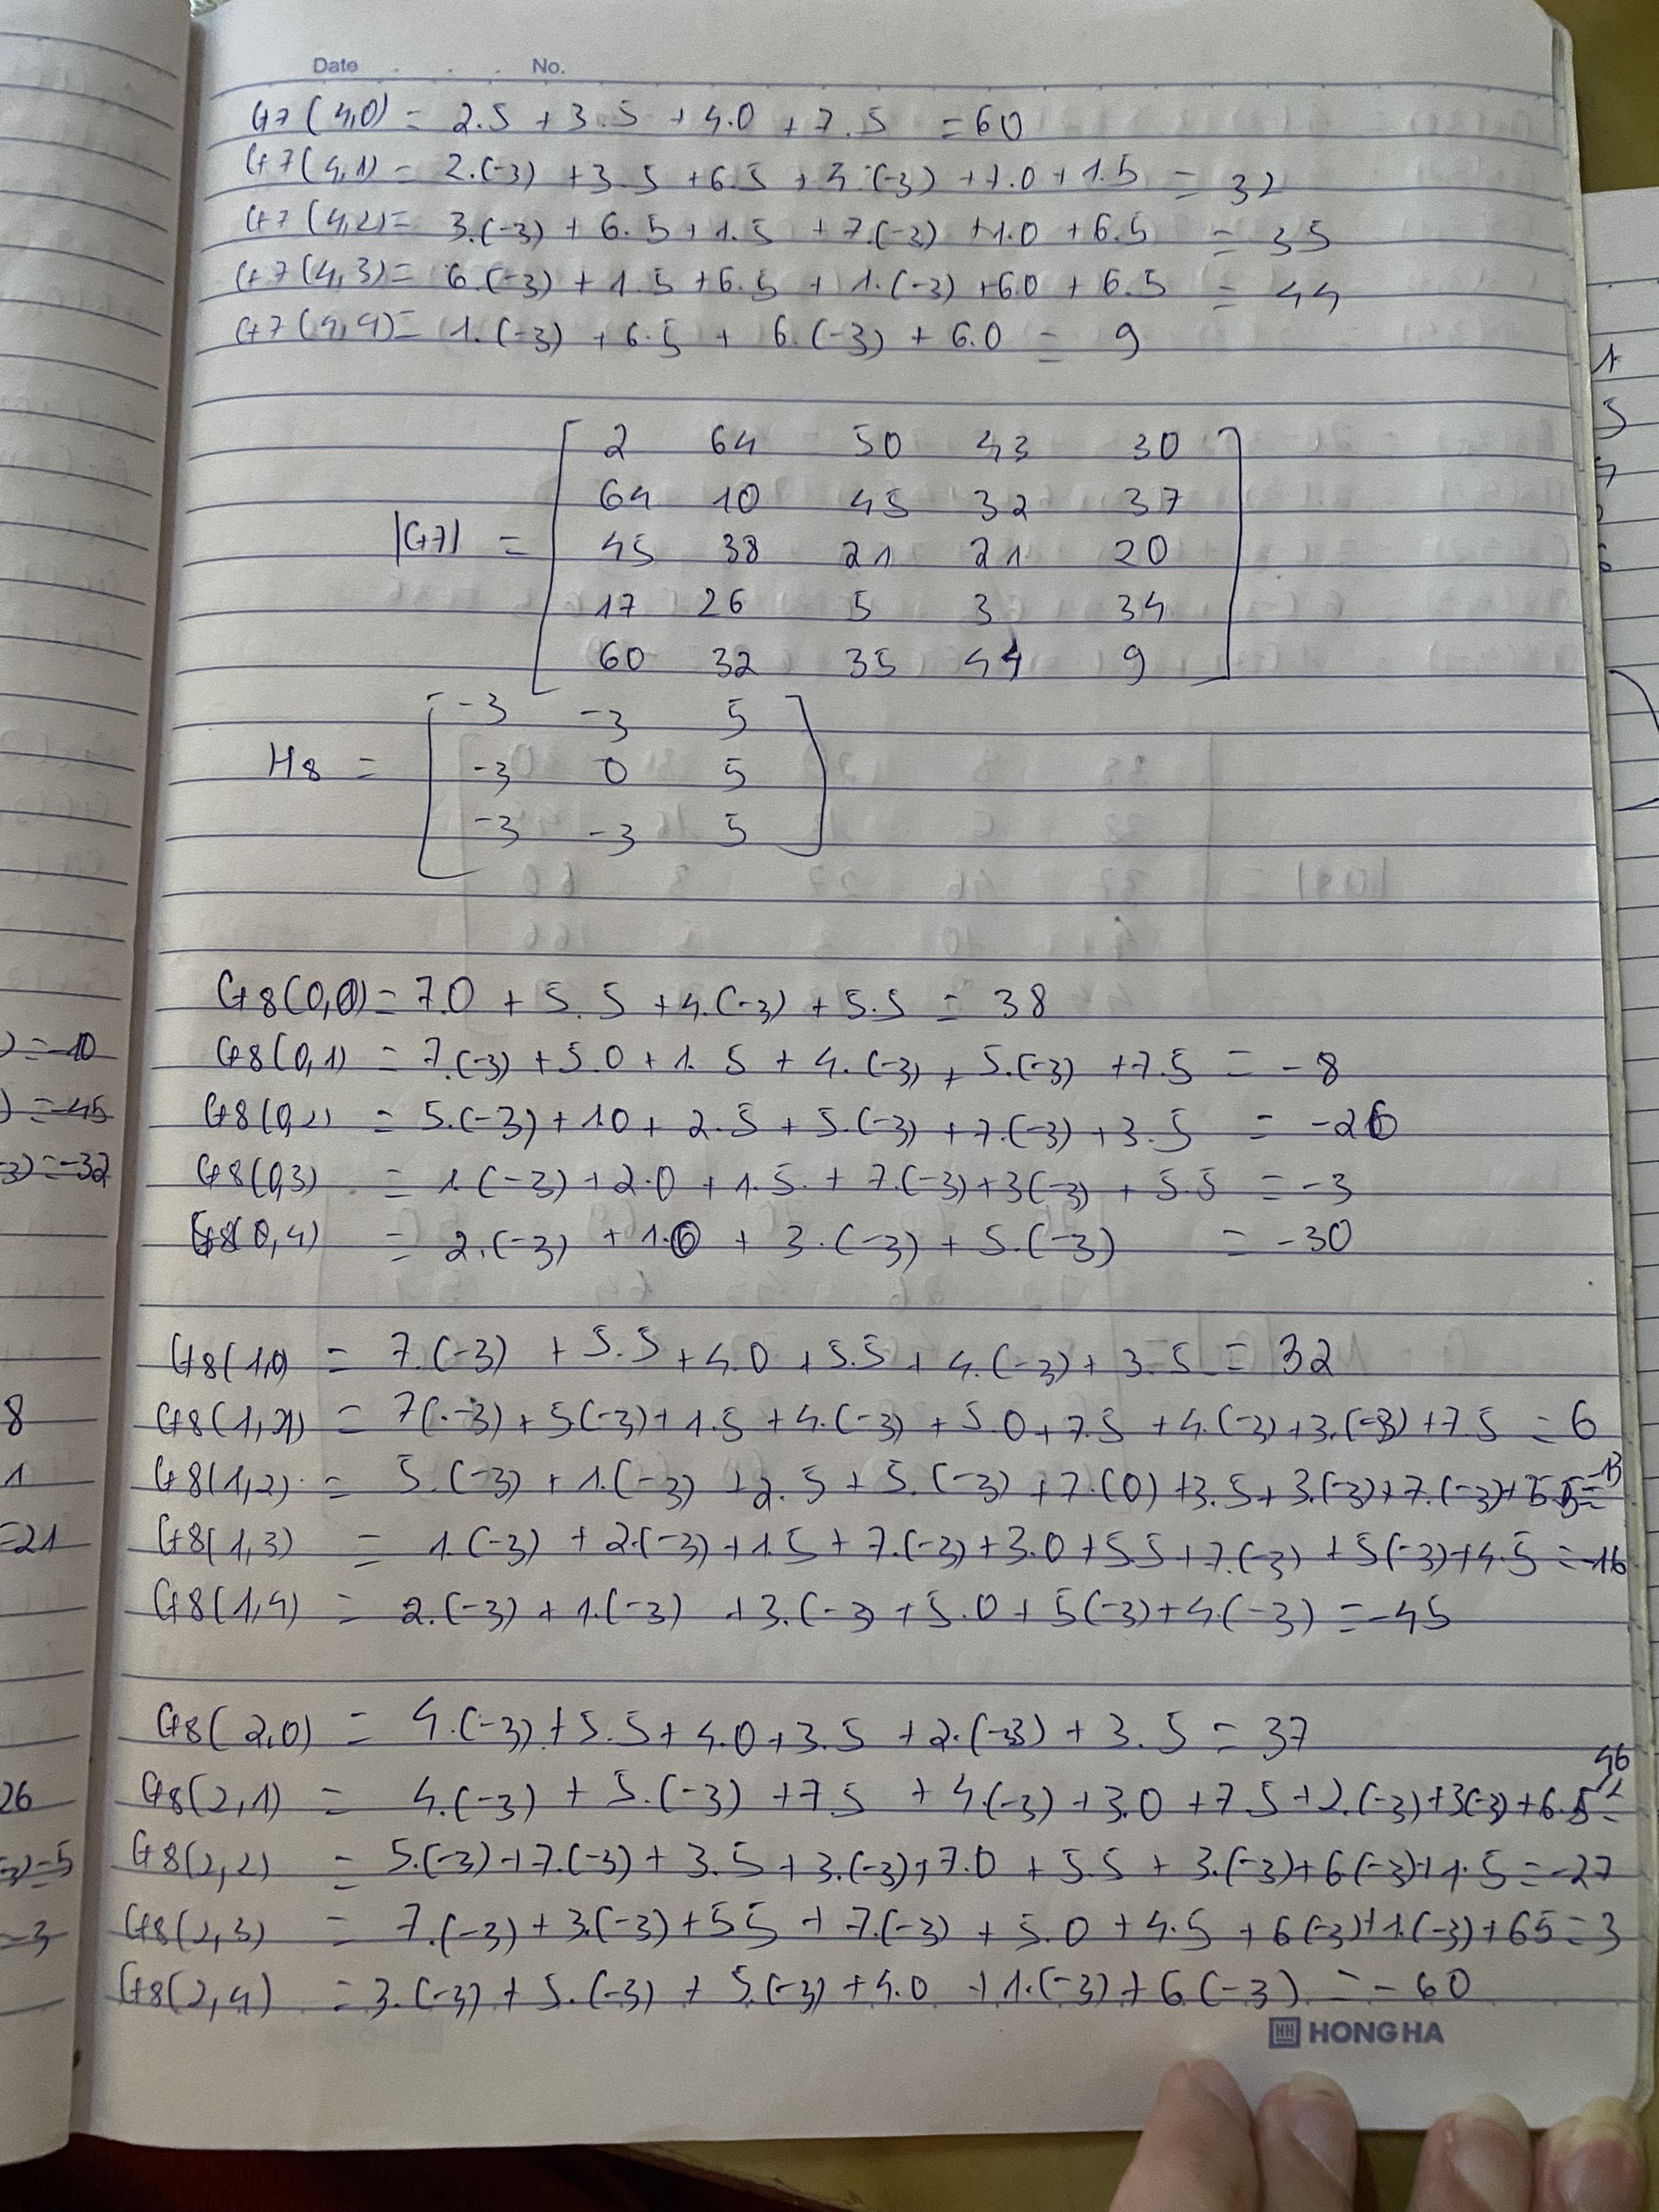 Date . . . No.
G7(4,0) = 2.5 + 3.5 + 4.0 + 7.5 = 60
G7(4,1) = 2.(-3) + 3.5 + 6.5 + 4.(-3) + 7.0 + 1.5 = 32
G7(4,2) = 3.(-3) + 6.5 + 1.5 + 7.(-3) + 1.0 + 6.5 = 35
G7(4,3) = 6.(-3) + 1.5 + 6.5 + 1.(-3) + 6.0 + 6.5 = 44
G7(4,4) = 1.(-3) + 6.5 + 6.(-3) + 6.0 = 9
2 64 50 43 30
64 10 45 32 37
|G7| = 45 38 21 21 20
17 26 5 3 34
60 32 35 44 9
-3 -3 5
H8 = -3 0 5
-3 -3 5
G8(0,0) = 7.0 + 5.5 + 4.(-3) + 5.5 = 38
G8(0,1) = 7.(-3) + 5.0 + 1.5 + 4.(-3) + 5.(-3) + 7.5 = -8
G8(0,2) = 5.(-3) + 1.0 + 2.5 + 5.(-3) + 7.(-3) + 3.5 = -26
G8(0,3) = 1.(-3) + 2.0 + 1.5 + 7.(-3) + 3(-3) + 5.5 = -3
G8(0,4) = 2.(-3) + 1.0 + 3.(-3) + 5.(-3) = -30
G8(1,0) = 7.(-3) + 5.5 + 4.0 + 5.5 + 4.(-3) + 3.5 = 32
G8(1,1) = 7(-3) + 5(-3) + 1.5 + 4.(-3) + 5.0 + 7.5 + 4.(-3) + 3.(-3) + 7.5 = 6
G8(1,2) = 5.(-3) + 1.(-3) + 2.5 + 5.(-3) + 7.(0) + 3.5 + 3.(-3) + 7.(-3) + 5.5 = -13
G8(1,3) = 1.(-3) + 2.(-3) + 1.5 + 7.(-3) + 3.0 + 5.5 + 7.(-3) + 5(-3) + 4.5 = -16
G8(1,4) = 2.(-3) + 1.(-3) + 3.(-3 + 5.0 + 5(-3) + 4.(-3) = -45
G8(2,0) = 4.(-3) + 5.5 + 4.0 + 3.5 + 2.(-3) + 3.5 = 37
G8(2,1) = 4.(-3) + 5.(-3) + 7.5 + 4.(-3) + 3.0 + 7.5 + 2.(-3) + 3(-3) + 6.5 = 46
G8(2,2) = 5.(-3) + 7.(-3) + 3.5 + 3.(-3) + 7.0 + 5.5 + 3.(-3) + 6(-3) + 1.5 = -27
G8(2,3) = 7.(-3) + 3.(-3) + 5.5 + 7.(-3) + 5.0 + 4.5 + 6(-3) + 1.(-3) + 6.5 = 3
G8(2,4) = 3.(-3) + 5.(-3) + 5.(-3) + 4.0 + 1.(-3) + 6(-3) = -60
HONG HA
) = -10
) = -45
-3) = -32
8
1
=21
26
-3) = 5
-3